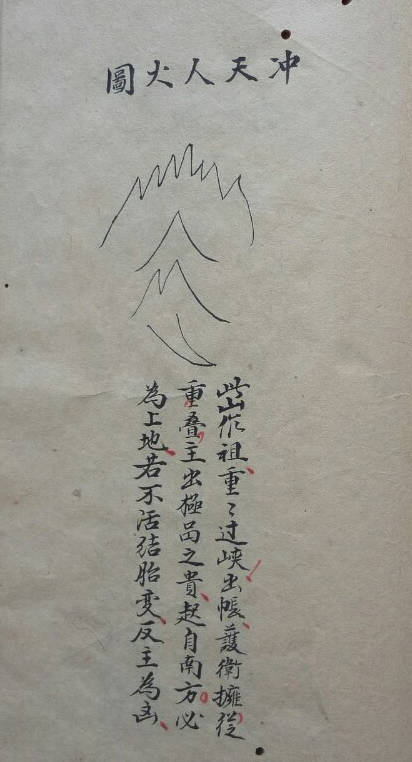 冲天人火圖
此山作祖、重〻过峡、出帳、護衛擁從
重叠、主出極品之貴、起自南方。必
為上地、若不活结胎变、反主為凶、